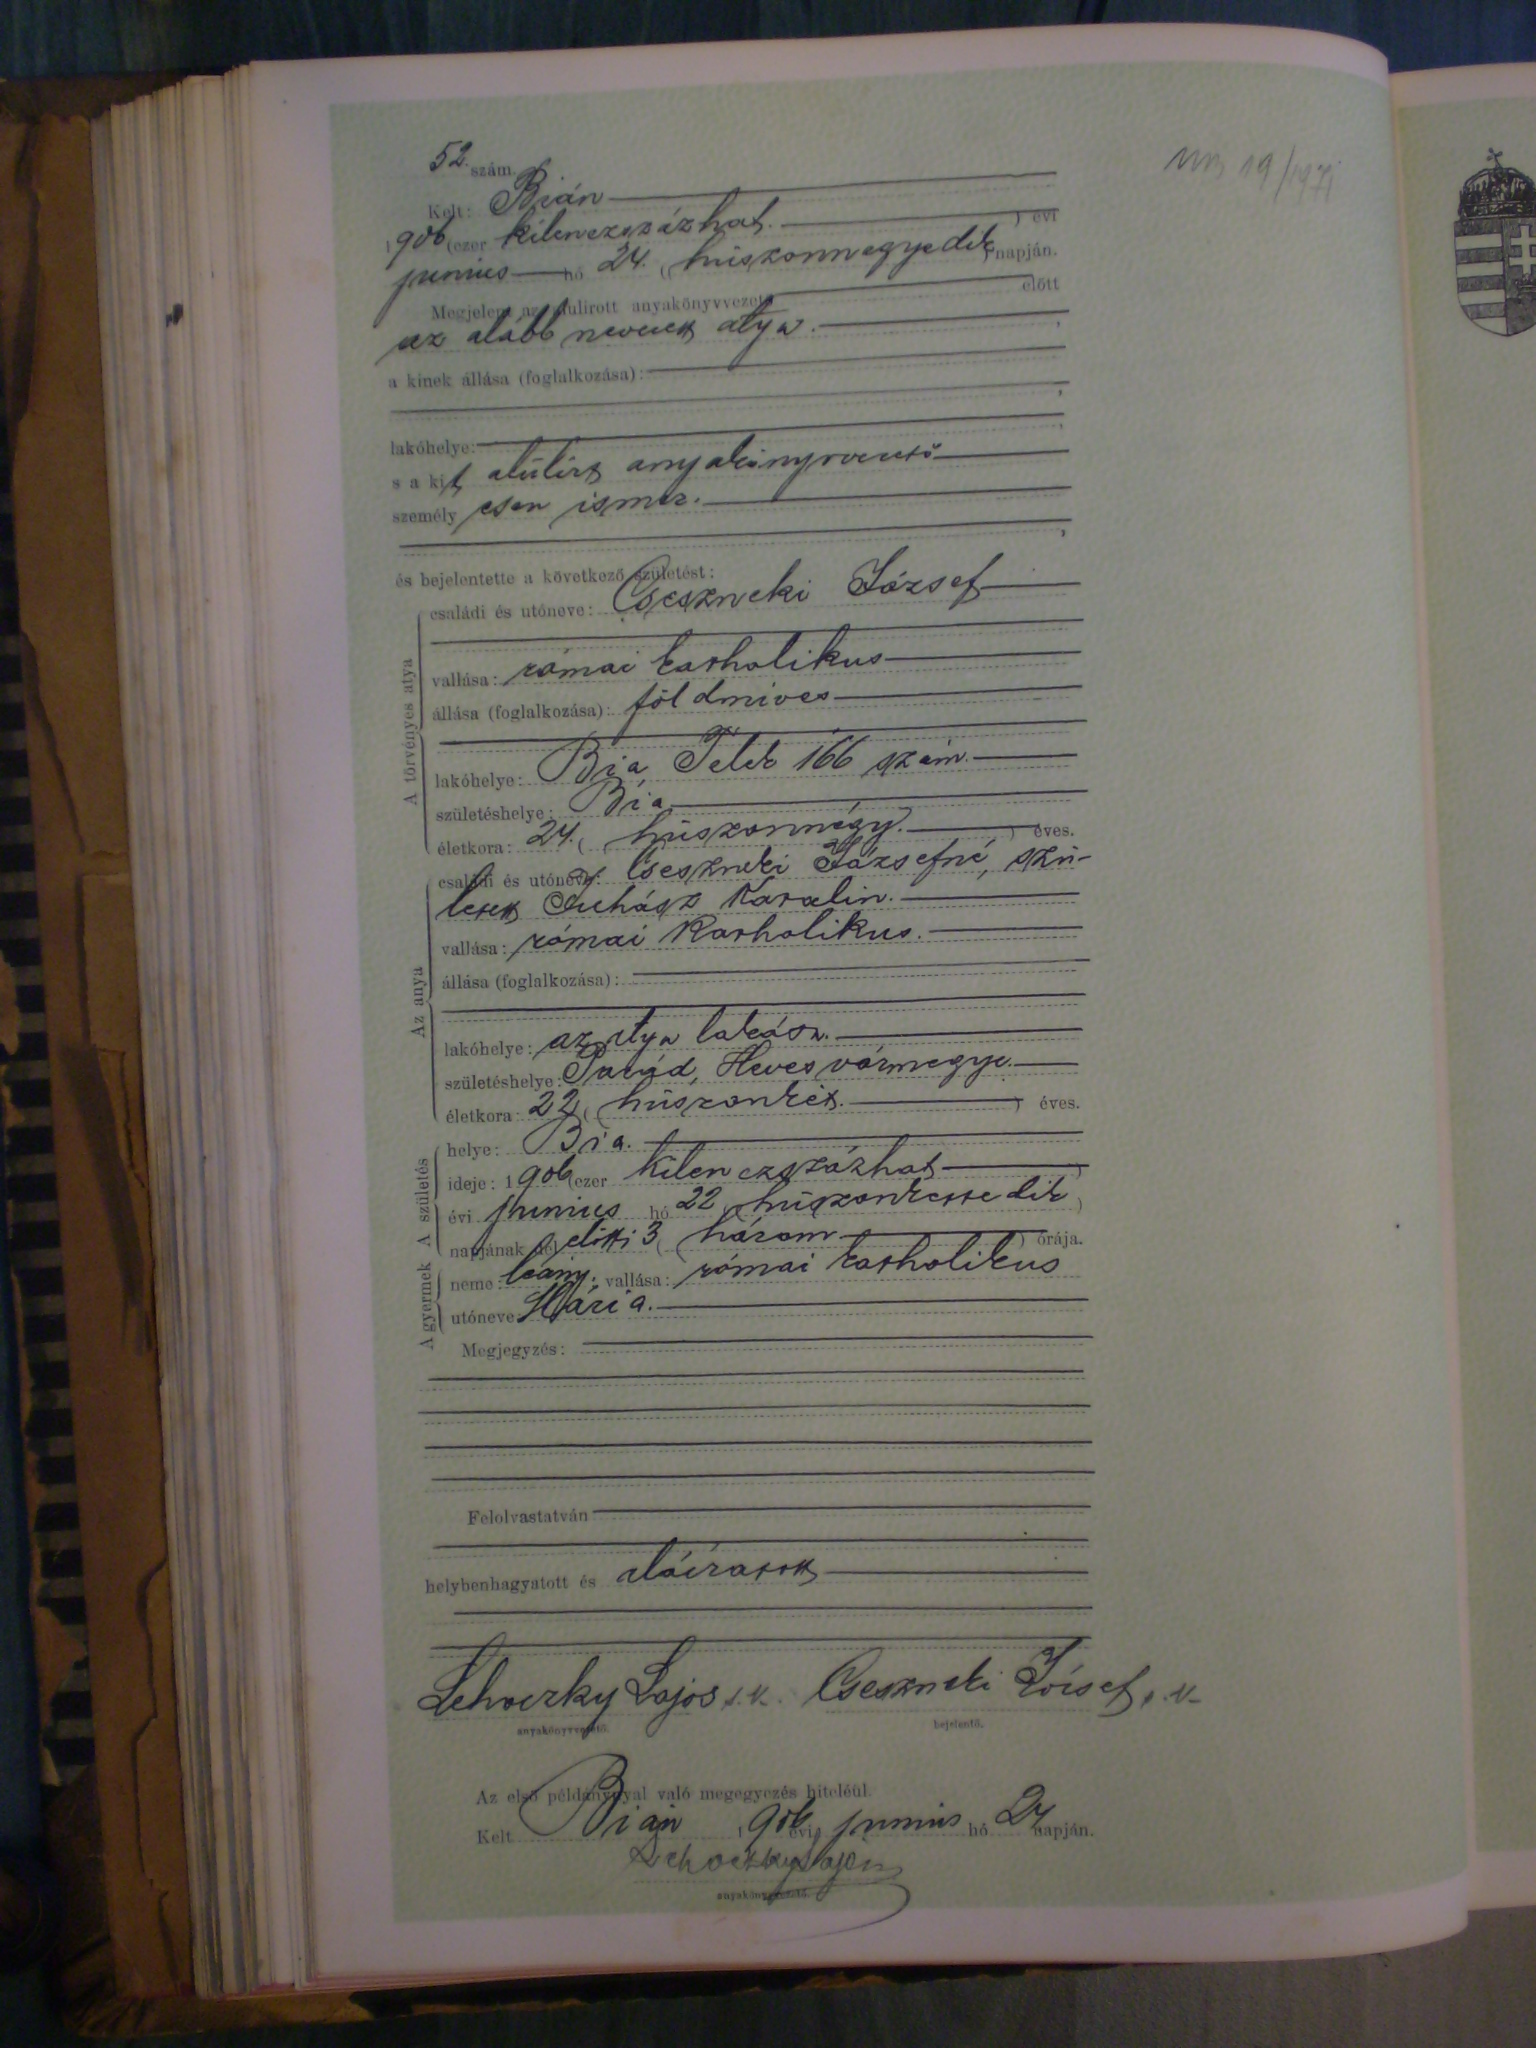 52. szám.
Kelt: Bián
1906 (ezer kilenczszázhat.) évi
junius hó 24. (huszonnegyedik) napján.
Megjelent az alulirott anyakönyvvezető előtt
az alább nevezett atya.
a kinek állása (foglalkozása):
lakóhelye:
s a kit alúlirt anyakönyvvezető
személyesen ismer.
és bejelentette a következő születést:
A törvényes atya
családi és utóneve: Cseszneki József
vallása: római katholikus
állása (foglalkozása): földmives
lakóhelye: Bia, Telek 166 szám.
születéshelye: Bia
életkora: 24. (huszonnégy.) éves.
Az anya
családi és utóneve: Cseszneki Józsefné, szü-
letett Juhász Karolin.
vallása: római katholikus.
állása (foglalkozása):
lakóhelye: az atya lakása.
születéshelye: Parád, Heves vármegye.
életkora: 22. (huszonkét.) éves.
A születés
helye: Bia.
ideje: 1906 (ezer kilenczszázhat)
évi junius hó 22 (huszonkettedik)
napjának dél előtti 3 (három) órája.
A gyermek
neme: leány. vallása: római katholikus
utóneve: Mária.
Megjegyzés:
Felolvastatván
helybenhagyatott és aláiratott
Lehoczky Lajos s. k. Cseszneki József s. k.
anyakönyvvezető. bejelentő.
Az első példánynyal való megegyezés hiteléül.
Kelt Bián 1906 évi junius hó 24 napján.
Lehoczky Lajos
anyakönyvvezető.
19/1971